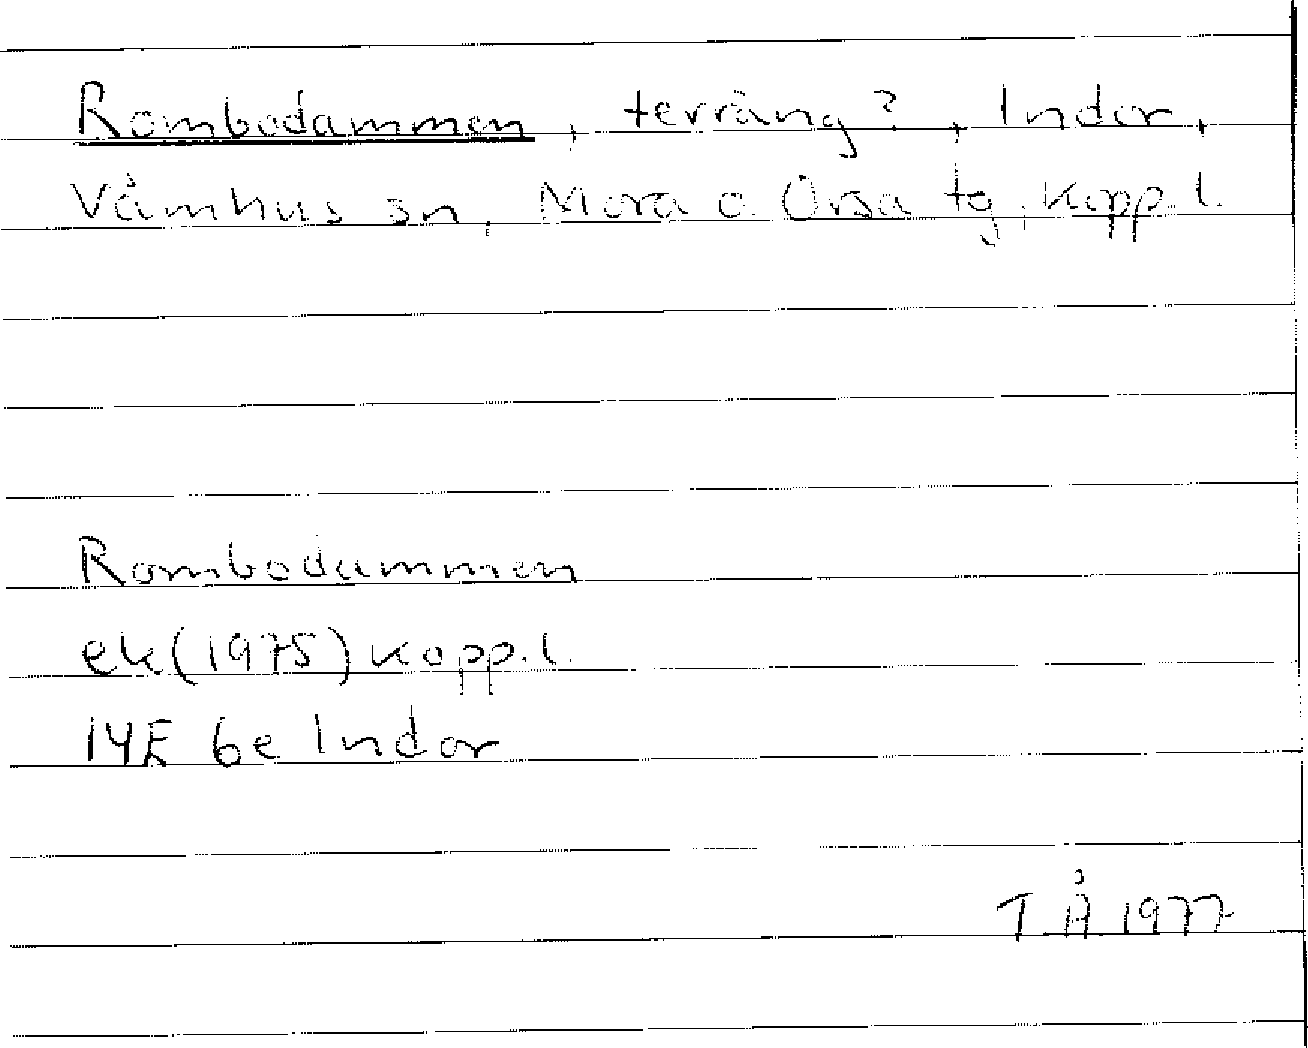 Rombodammen, terräng?, Indor,
Våmhus sn, Mora o. Orsa tg, Kopp. l.
Rombodammen
ek (1975) Kopp. l.
14E 6e Indor
T Å 1977